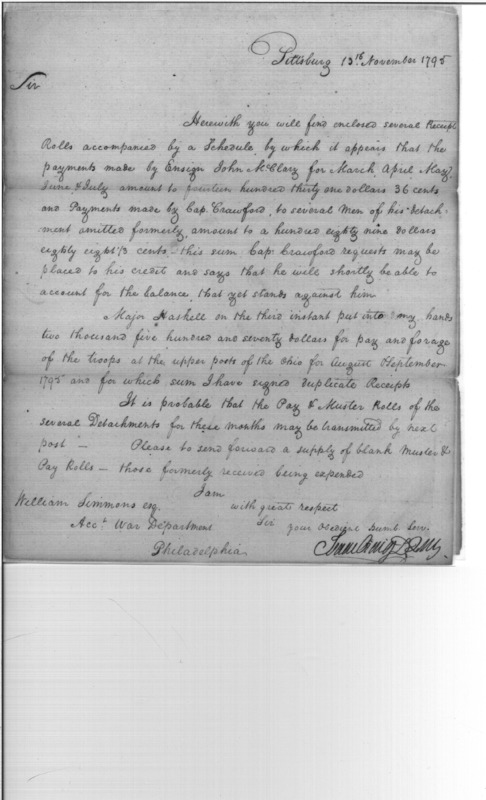 Pittsburg 13th November 1795
Sir
Herewith you will find enclosed several Receipt
Rolls accompanied by a Schedule, by which it appears that the
payments made by Ensign John McClary for March, April, May
June & July amount to fourteen hundred thirty one dollars 36 cents
and Payments made by Cap. Crawford, to several Men of his Detach-
ment omitted formerly, amount to a hundred eighty nine dollars
eighty eight 1/3 cents, this sum Cap. Crawford requests may be
placed to his credit and says that he will shortly be able to
account for the balance that yet stands against him
Major Haskell on the third instant put into my hands
two thousand five hundred and seventy dollars for pay and forage
of the troops at the upper posts of the Ohio for August & September
1795 and for which sum I have signed duplicate Receipts
It is probable that the Pay & Muster Rolls of the
several Detachments for these months may be transmitted by next
post — Please to send forward a supply of blank Muster &
Pay Rolls — those formerly received being expended
I am
William Simmons esq. with great respect
Acct War Department Sir your Obedient humb. Serv.
Philadelphia Isaac Craig